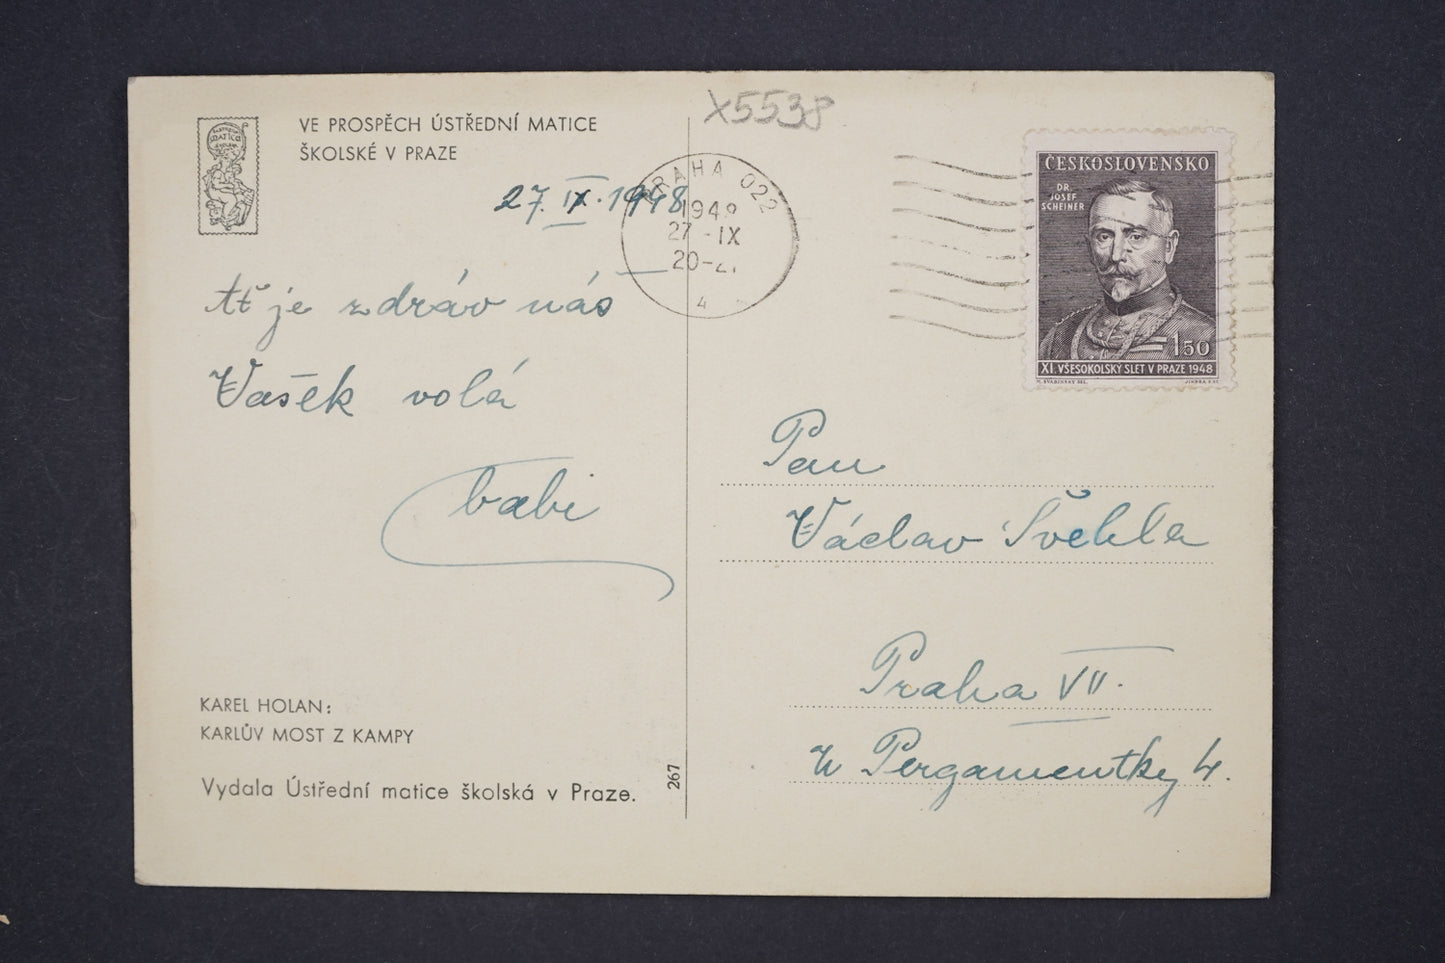 VE PROSPĚCH ÚSTŘEDNÍ MATICE
ŠKOLSKÉ V PRAZE
27. IX. 1948
Ať je zdráv náš
Vašek volá
babi
KAREL HOLAN:
KARLŮV MOST Z KAMPY
Vydala Ústřední matice školská v Praze.
267
X5538
PRAHA 022
1948
27 -IX
20-21
4
ČESKOSLOVENSKO
DR.
JOSEF
SCHEINER
1 50
XI. VŠESOKOLSKÝ SLET V PRAZE 1948
M. ŠVABINSKÝ DEL.
JINDRA
Pan
Václav Švehla
Praha VII.
U Pergamentky 4.